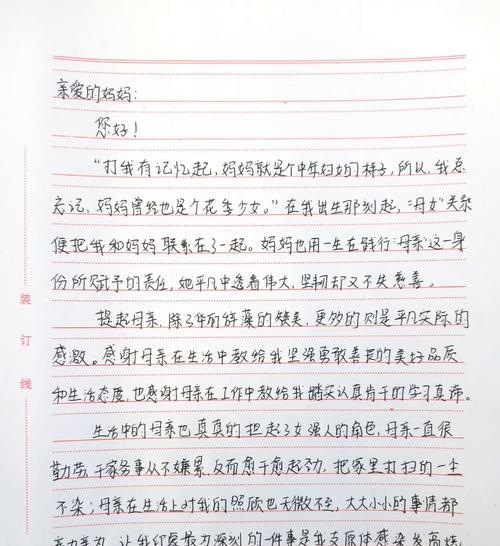 亲爱的妈妈:
您好!
“打我有记忆起,妈妈就是个中年妇女的样子,所以,我总
忘记,妈妈曾经也是个花季少女。”在我出生那刻起,“母女”关系
便把我和妈妈联系在了一起。妈妈也用一生在践行“母亲”这一身
份所赋予的责任,她平凡中透着伟大,坚韧却又不失慈善。
提起母亲,除了华丽辞藻的赞美,更多的则是平凡实际的
感激。感谢母亲在生活中教给我坚强勇敢善良的美好品质
和生活态度,也感谢母亲在工作中教给我踏实认真肯干的学习真谛。
生活中的母亲也真真的担起了女强人的角色,母亲一直很
勤劳,干家务事从不嫌累,反而愈干愈起劲,把家里打扫的一尘
不染;母亲在生活上对我的照欣也无微不至,大大小小的事情都
让我印象最为深刻的一件事是我支原体感染发高烧
装订线